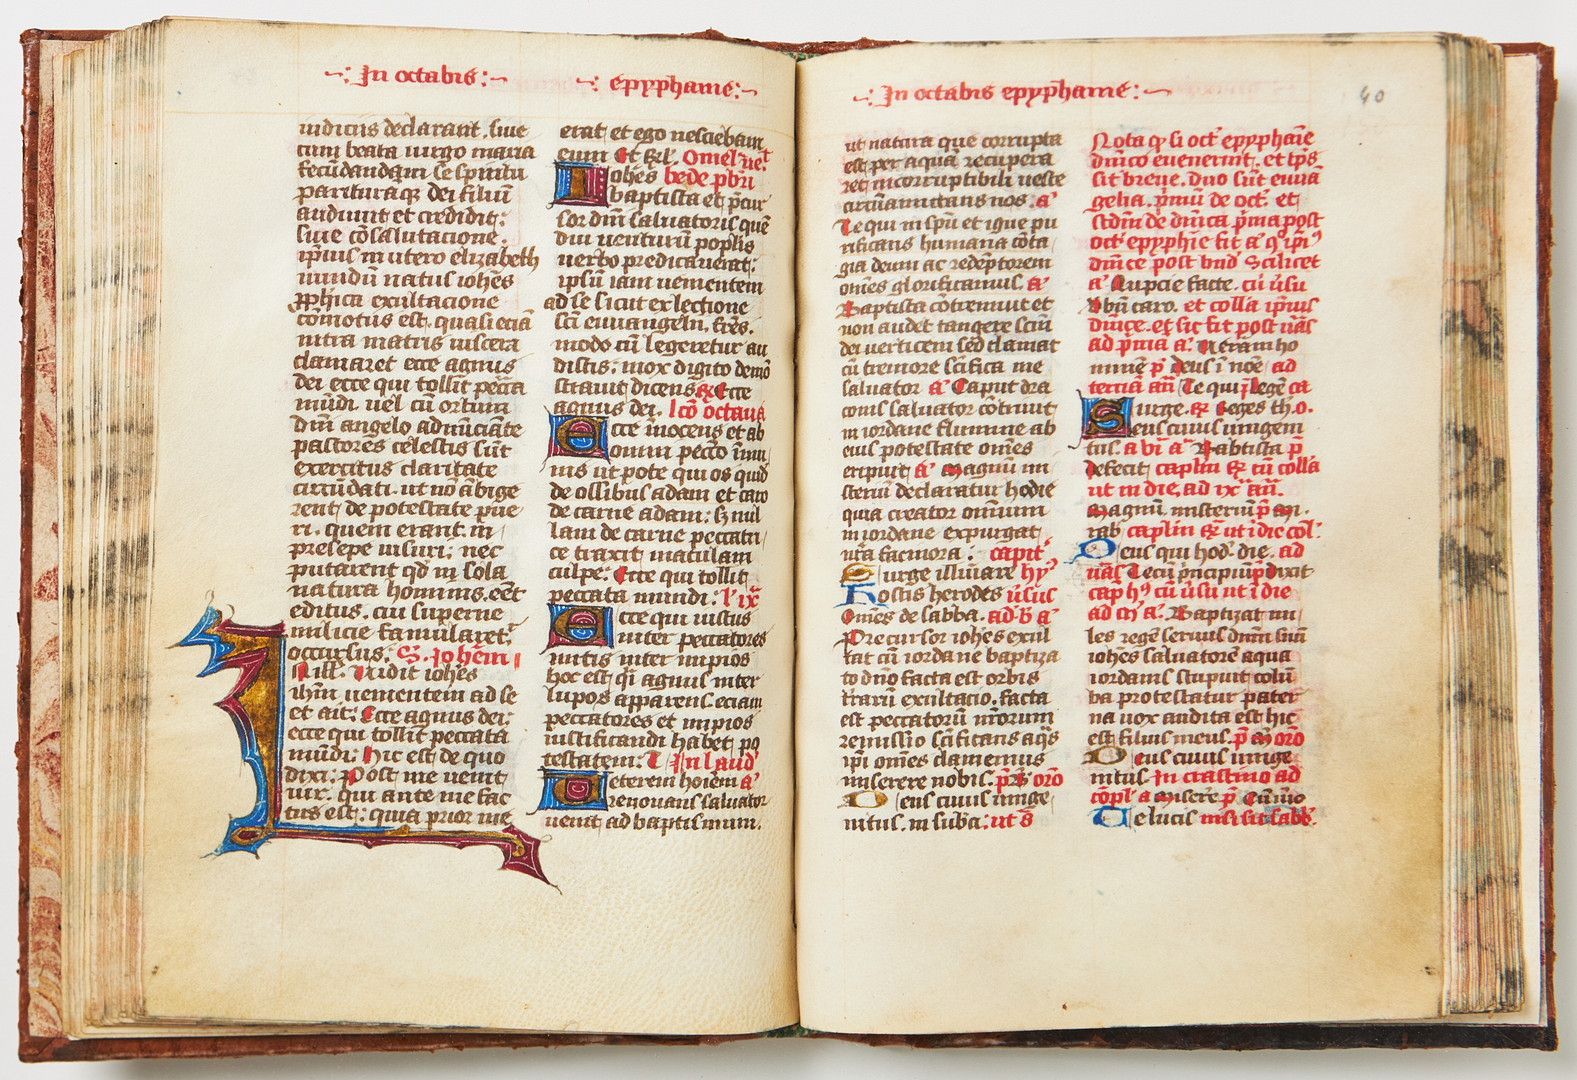 In octabis
epyphanie
iudicijs declarant. siue
cum beata uirgo maria
fecundandam se spiritu
parituraque dei filiū
audiuit et credidit:
siue cōsalutacione.
ip̄ius in utero elizabeth
mundū natus ioh̄es
p̄phica exultacione
cōmotus est. quasi eciā
intra matris uiscera
clamaret ecce agnus
dei ecce qui tollit pecca
mūdi. uel cū ortum
dn̄i angelo adnūciāte
pastores celestis sūt
exercitus claritate
circūdati. ut nō ābige
rent de potestate pue
ri. quem erant in
presepe uisuri: nec
putarent qd̄ in sola
natura hominis. eēt
editus. cui superne
milicie famularet
occursus: S. Iohēm
Vidit ioh̄es
ih̄m uenientem ad se
et ait: Ecce agnus dei:
ecce qui tollit peccata
mūdi: hic est de quo
dixi: Post me uenit
uir. qui ante me fac
tus est: quia prior me
erat et ego nesciebam
eum Et Rl. Omel. uet
Ioh̄es bede pb̄ri
baptista et p̄cur
sor dn̄i saluatoris quē
diu uenturū popl̄is
uerbo predicauerat:
ipsū iam uenientem
ad se sicut ex lectione
sci euuangelii. fr̄es.
modo cū legeretur au
distis: mox digito demō
strauit dicens Ecce
agnus dei. lcō octaua
Ecce inocens et ab
omni pecc̄o īmu
nis ut pote qui os quid
de ossibus adam et caro
de carne adam: sz nul
lam de carne peccatri
ce traxit maculam
culpe. Ecce qui tollit
peccata mundi: l' ix
Ecce qui iustus
inter peccatores
mitis inter impios
hoc est q̄i agnus inter
lupos apparens. eciam
peccatores et impios
iustificandi habet po
testatem: In laud'
Ueterem hoīem a'
renouans saluator
uenit ad baptismum.
In octabis epyphanie
40
ut natura que corrupta
est per aquā recupera
ret incorruptibili ueste
circūamictans nos. a'
Te qui in spū et igne pu
rificans humana cōta
gia deum ac redēptorem
om̄es glorificamus. a'
Baptista cōtremuit et
non audet tangere scm̄
dei uerticem sed clamat
cū tremore sc̄ifica me
saluator a' Caput dra
conis saluator cōtriuit
in iordane flumine ab
eius potestate om̄es
eripuit a' Magnū mi
steriū declaratur hodie
quia creator omnium
in iordane expurgat
nr̄a facinora: capit
Surge illuiare hy'
Hostis herodes ūsus
Om̄es de sabba. ad b a'
Precursor ioh̄es exul
tat cū iordane baptiza
to dn̄o facta est orbis
trarū exultacio. facta
est peccatorū nr̄orum
remissio sc̄ificans aq̄s
ip̄i om̄es clamemus
miserere nobis. p̄s oro
Deus cuius unige
nitus. in subc̄a: ut s̄
Nota q̄ si oct' epyphaīe
dn̄ico euenerint. et tp̄s
sit breue. duo sūt euuā
gelia. p̄mū de oct. et
scdm̄ de dn̄ica p̄ma post
oct' epyphie fit a' q' ip̄i'
dn̄ice post bn̄d Scilicet
a' Nupcie facte. cū ūsu
Vbū caro. et coll'a ip̄ius
dn̄ice. et sic fit post uas
ad p̄mia a. Verām ho
mine p' Deus ī noīe ad
terciā an̄ Te qui ī legē ca
Surge. R' Reges th. o.
Deus cuius unigeni
tus. a vi a' Baptista p
defecit caplm R' cū coll'a
ut in die. ad ix an̄.
Magnū misteriū p' Mi
rab' caplm R' ut ī die col'.
Deus qui hod'. die. ad
uās Tecū prīncipiū p dixit
cap h' cū ūsu ut ī die
ad m a. Baptizat mi
les regē seruus dnm̄ suū
ioh̄es saluatorē aqua
iordanis stupuit colū
ba protestatur pater
na uox audita est hic
est filius meus. p' M oro
Deus cuius unige
nitus In crastino ad
cōpl' a Misere p' Cū īuo
Te lucis nisi sit sabb'.